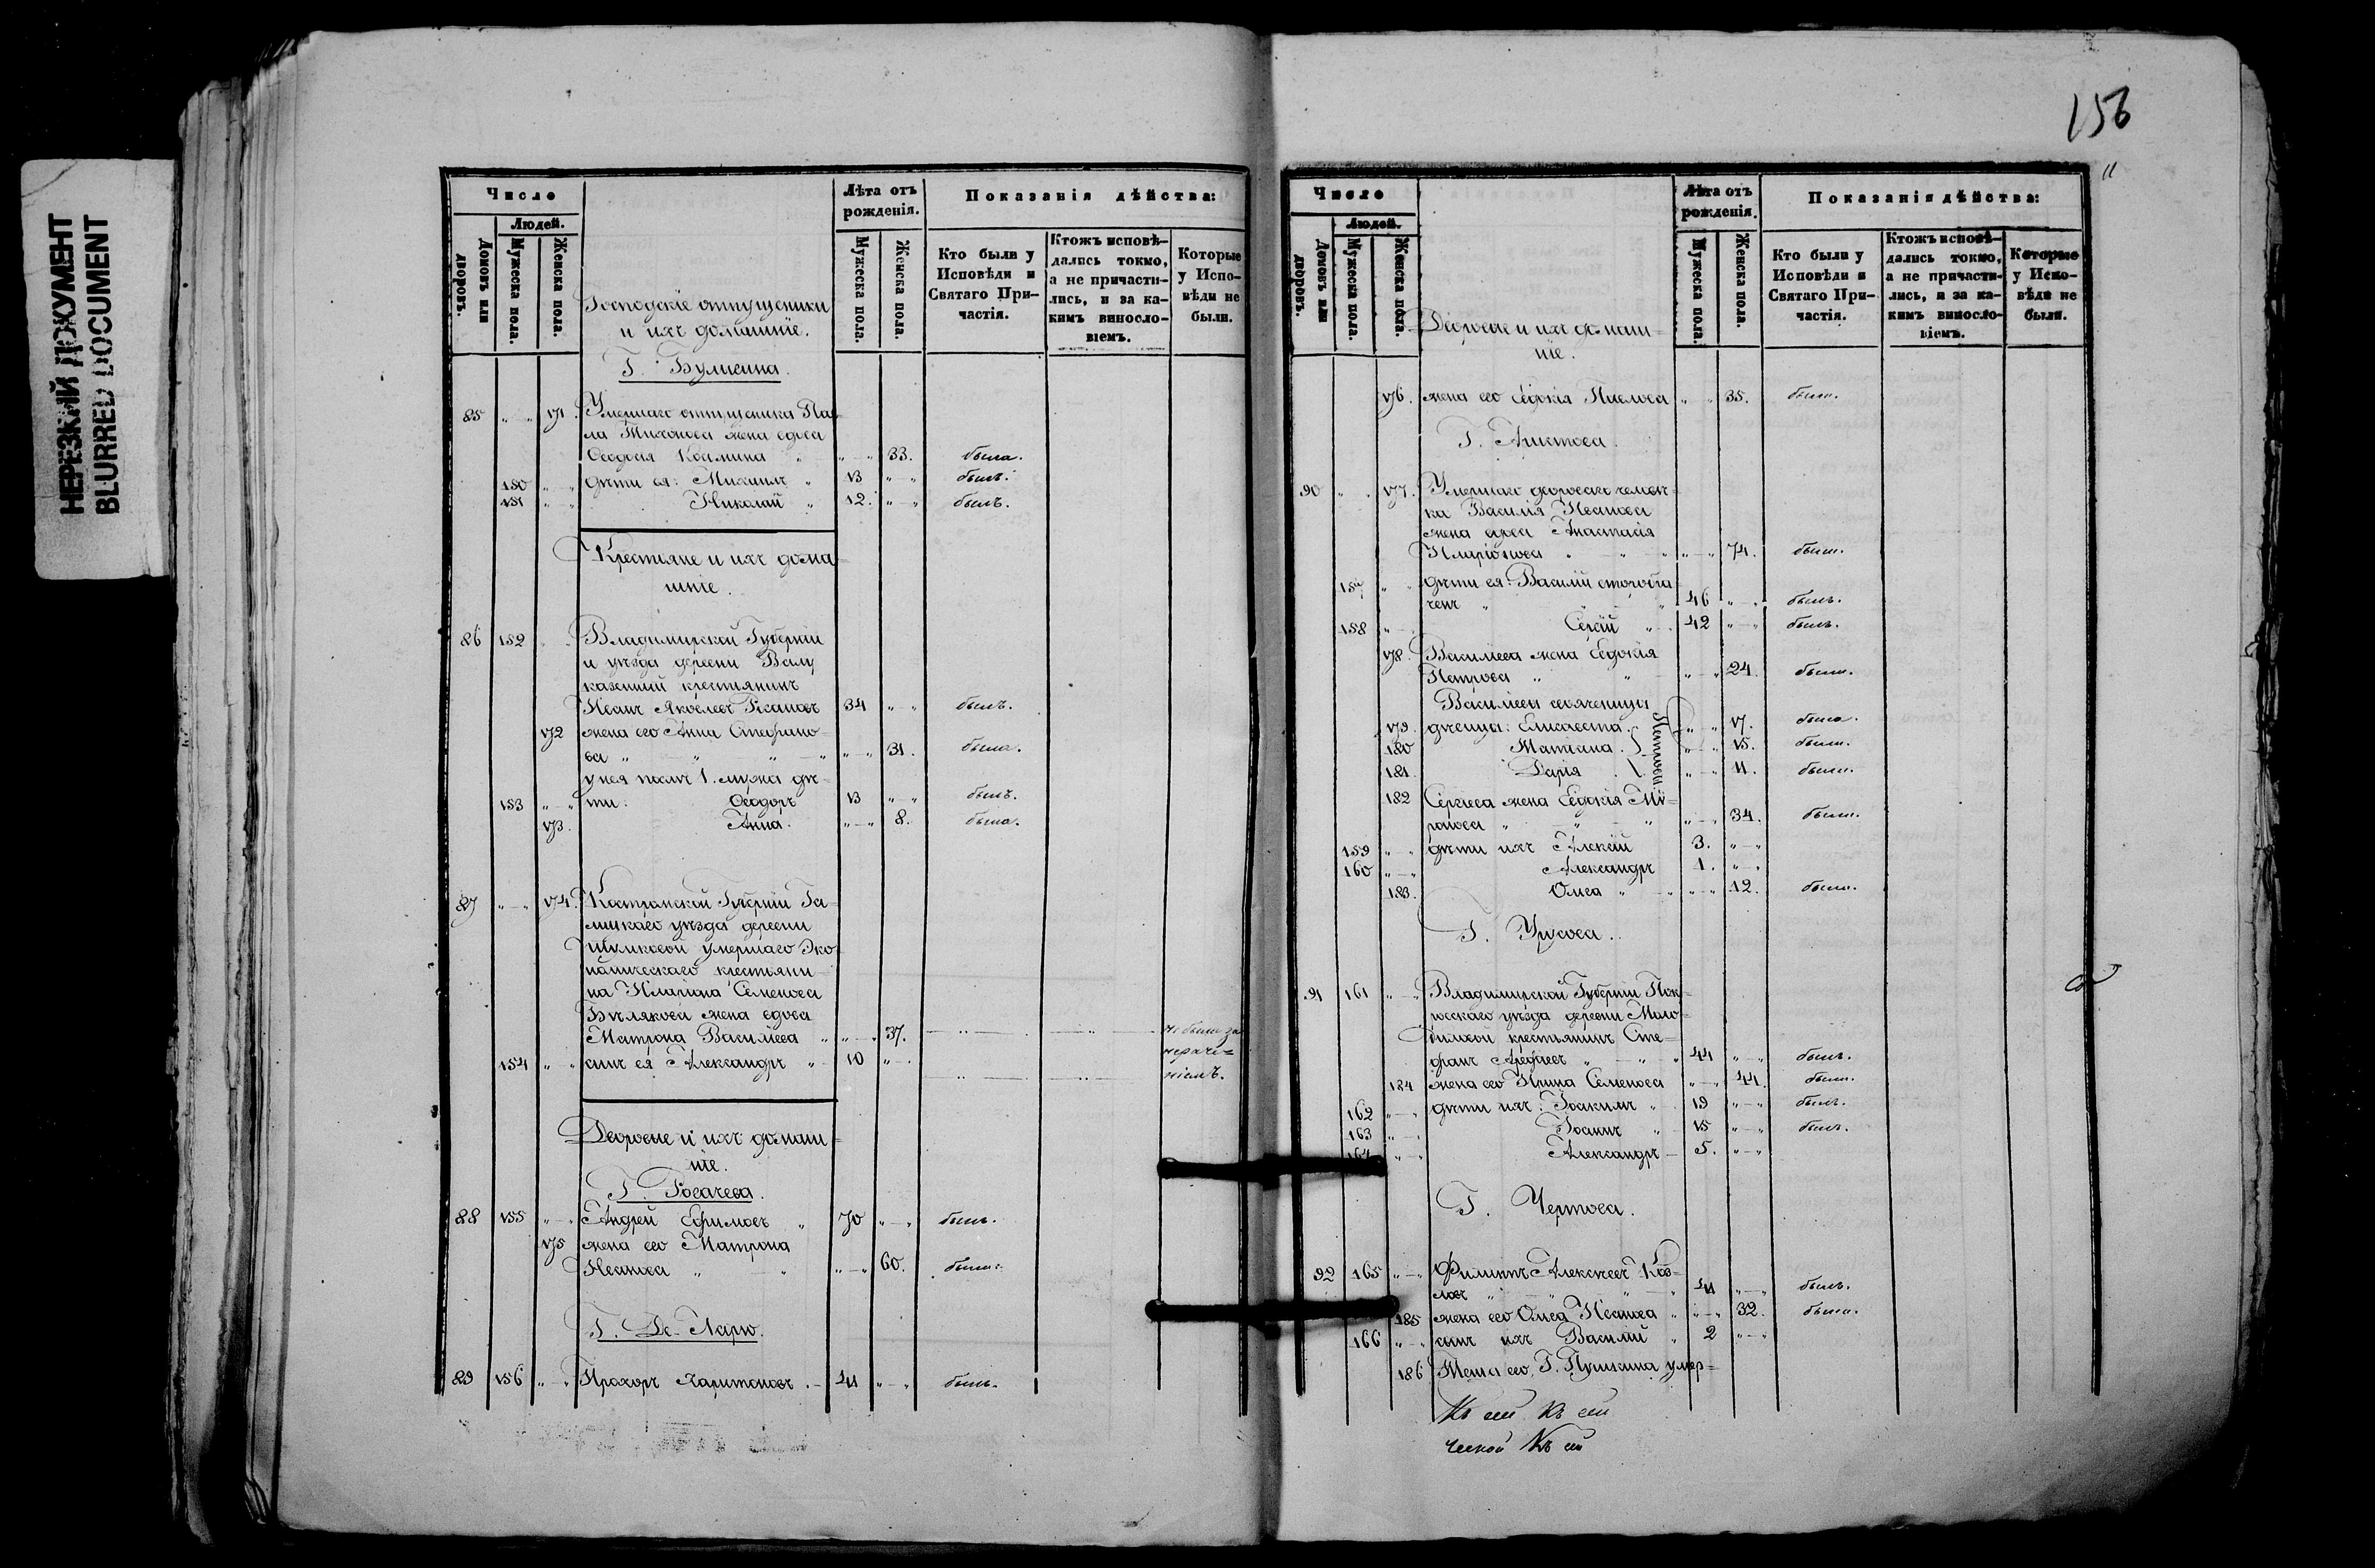 НЕРЕЗКИЙ ДОКУМЕНТ
BLURRED DOCUMENT
Число
Людей.
Домовъ или дворовъ.
Мужеска пола.
Женска пола.
Лѣта отъ рожденія.
Мужеска пола.
Женска пола.
Показанія дѣйства:
Кто были у Исповѣди и Святаго Причастія.
Ктожъ исповѣдались токмо, а не причастились, и за какимъ винословіемъ.
Которые у Исповѣди не были.
Господскіе отпущенники
и ихъ домашніе.
85 " " 171. Умершаго отпущеника Па=
ла Тихонова жена вдова
Ѳеодосія Козмина " " — " 33. была.
150 " " дѣти ея: Михаилъ " 13 " " былъ.
151 " " Николай " 12. " " былъ.
Крестьяне и ихъ дома=
шніе.
86 152 Владимирской Губерніи
и уѣзда деревни
казенный крестьянинъ
Иванъ Яковлевъ 34 " " былъ.
172 жена его Анна Стефано=
ва " " " " — " 31. была.
у нея послѣ 1. мужа дѣ=
153 " — " ти: Ѳеодоръ 13 " " былъ.
173. Анна. " — " 8. была.
87 " — " 174. Костромской Губерніи Га=
лицкаго уѣзда деревни
умершаго Эко=
номическаго крестьяни=
на Иларіона Семенова
Бѣлякова жена вдова
Матрона Васильева " " — " 37. — " — — " — не были за
нераче=
154 " " сынъ ея Александръ " 10 " — " — " — — " — ніемъ.
Дворовые и ихъ домаш=
ніе.
Г. Рогачева.
88 155 " — " Андрей Ефимовъ " 70 " — " былъ.
175 жена его Матрона
Иванова " " " — " 60. была.
Г. Де-Ларю.
89 156 " — " Прохоръ Харитоновъ . — 41 " — " былъ.
156
Число
Людей.
Домовъ или дворовъ.
Мужеска пола.
Женска пола.
Лѣта отъ рожденія.
Мужеска пола.
Женска пола.
Показанія дѣйства:
Кто были у Исповѣди и Святаго Причастія.
Ктожъ исповѣдались токмо, а не причастились, и за какимъ винословіемъ.
Которые у Исповѣди не были.
Дворовые и ихъ домаш=
ніе.
176. жена его Евдокія " " 35. была.
90 " . 177. Умершаго двороваго человѣ=
ка Василія Иванова
жена вдова Анастасія
Иларіонова " " " " — " 74. была.
157 " " дѣти ея: Василій второбра
ченъ " " " 46 " — " былъ.
158 " — Сергій " 42 " — " былъ.
178. Васильева жена Евдокія
Петрова " " " — " 24. была.
Васильева
179. Елисавета. " — " 17. была.
180 Татіана. " — " 15. была.
181. Дарія . " — " 11. была.
Петровы
182 Сергіева жена Евдокія Ми=
ронова " " " " — " 34. была.
159 " " дѣти ихъ Алексій 3. " — "
160 " — " Александръ 1. " — "
183. Ольга " " " — " 12. была.
91 161 " — " Владимирской Губерніи Пок=
ровскаго уѣзда деревни
крестьянинъ Сте=
фанъ " " " 44 " — " былъ.
184 жена его Ирина Семенова " — " 44. была.
162 " — " дѣти ихъ: Іоакимъ " 19 " — " былъ.
163 " — " Іоаннъ " 15 " — " былъ.
164 " — " Александръ — 5. " — "
Г. Черткова.
92 165 " — " Филиппъ Алексѣевъ Коз=
ловъ " " " 41 " — " былъ.
185 жена его Ольга Иванова " " — " 32. была.
166 " — " сынъ ихъ Василій " 2 " — "
186 Теща его, Г. Пушкина умер=